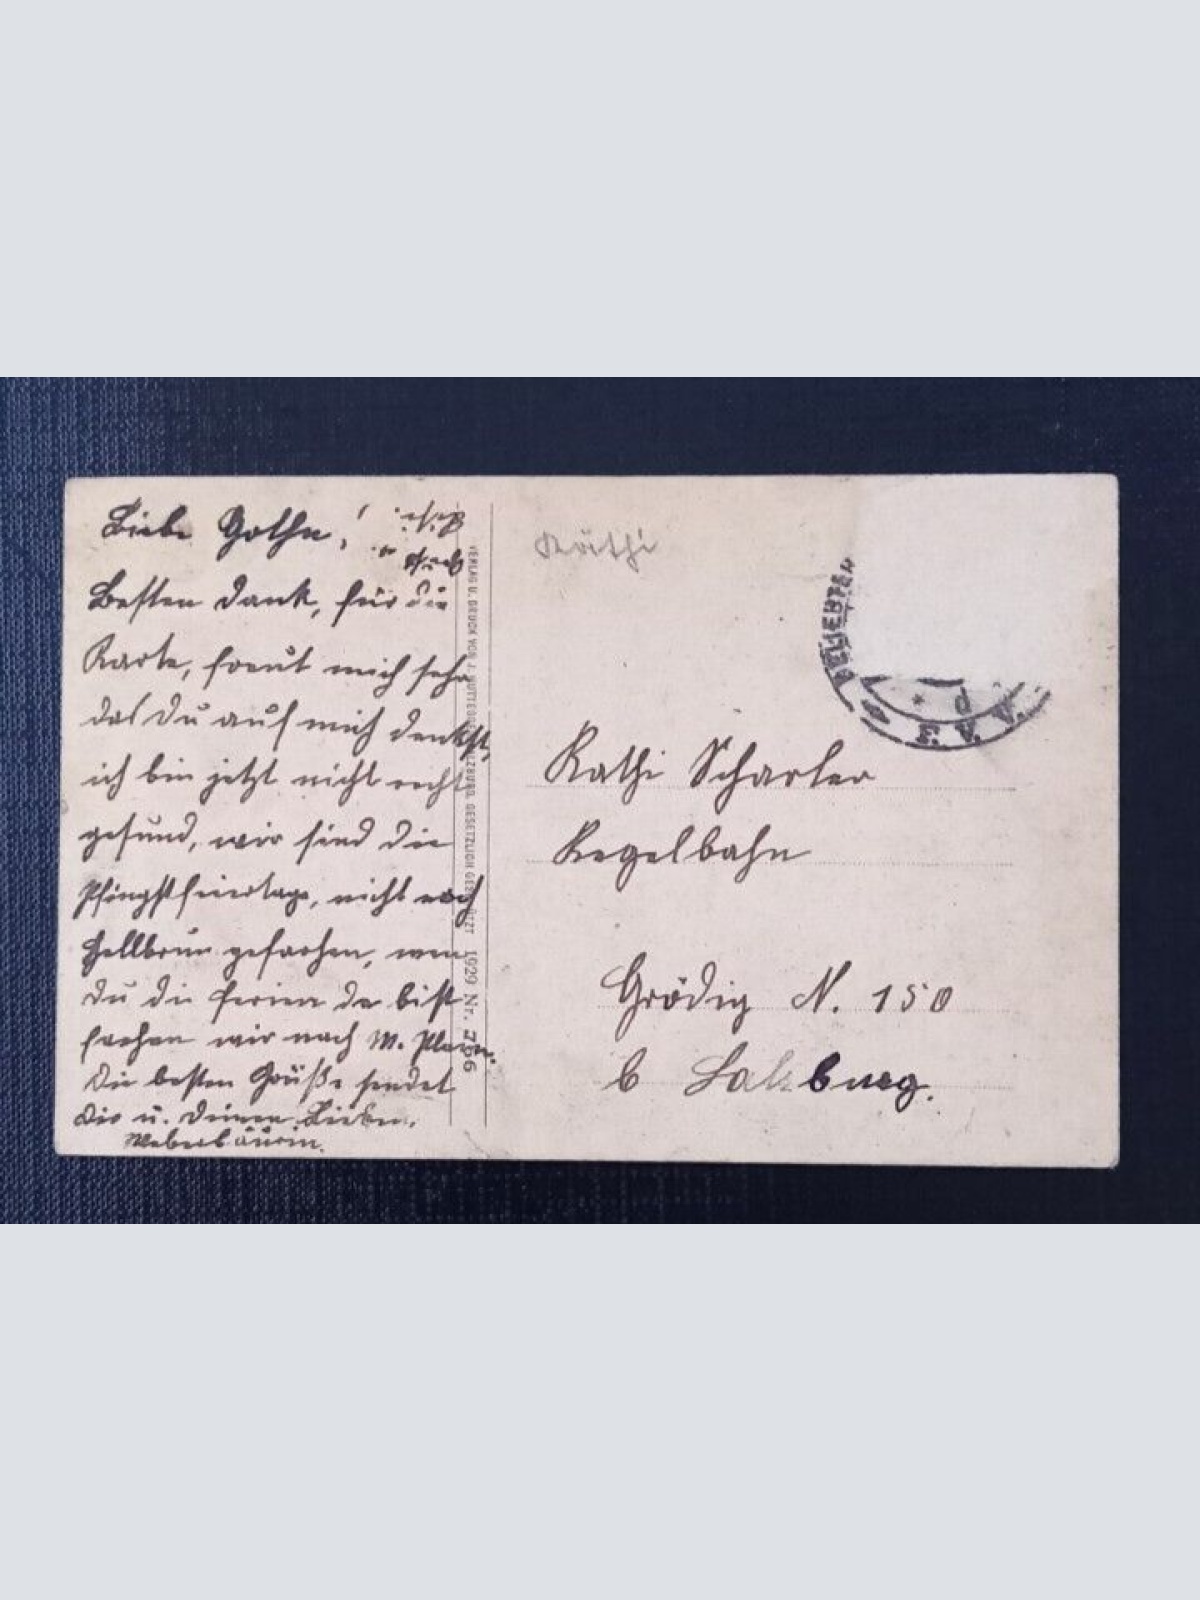 Liebe Gotha!
Besten Dank, für die
Karte, freut mich sehr
das Du auf mich denkst,
ich bin jetzt nicht recht
gesund, wir sind die
Pfingstfeiertage, nicht nach
Hellbrun gefahren, wen
Du die Ferien da bist
fahren wir nach M. Plain.
Die besten Grüße sendet
Dir u. Deinen Lieben,
Weberbäurin.
VERLAG U. DRUCK VON J. HUTTEGGER SALZBURG. GESETZLICH GESCHÜTZT 1929 Nr. 756
Käthi
BELIEBTE
Kathi Scharler
Kegelbahn
Grödig N. 150
b Salzburg.